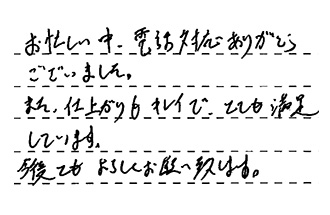 お忙しい中、電話対応ありがとう
ございました。
また、仕上がりもキレイで、とても満足
しています。
今後ともよろしくお願い致します。